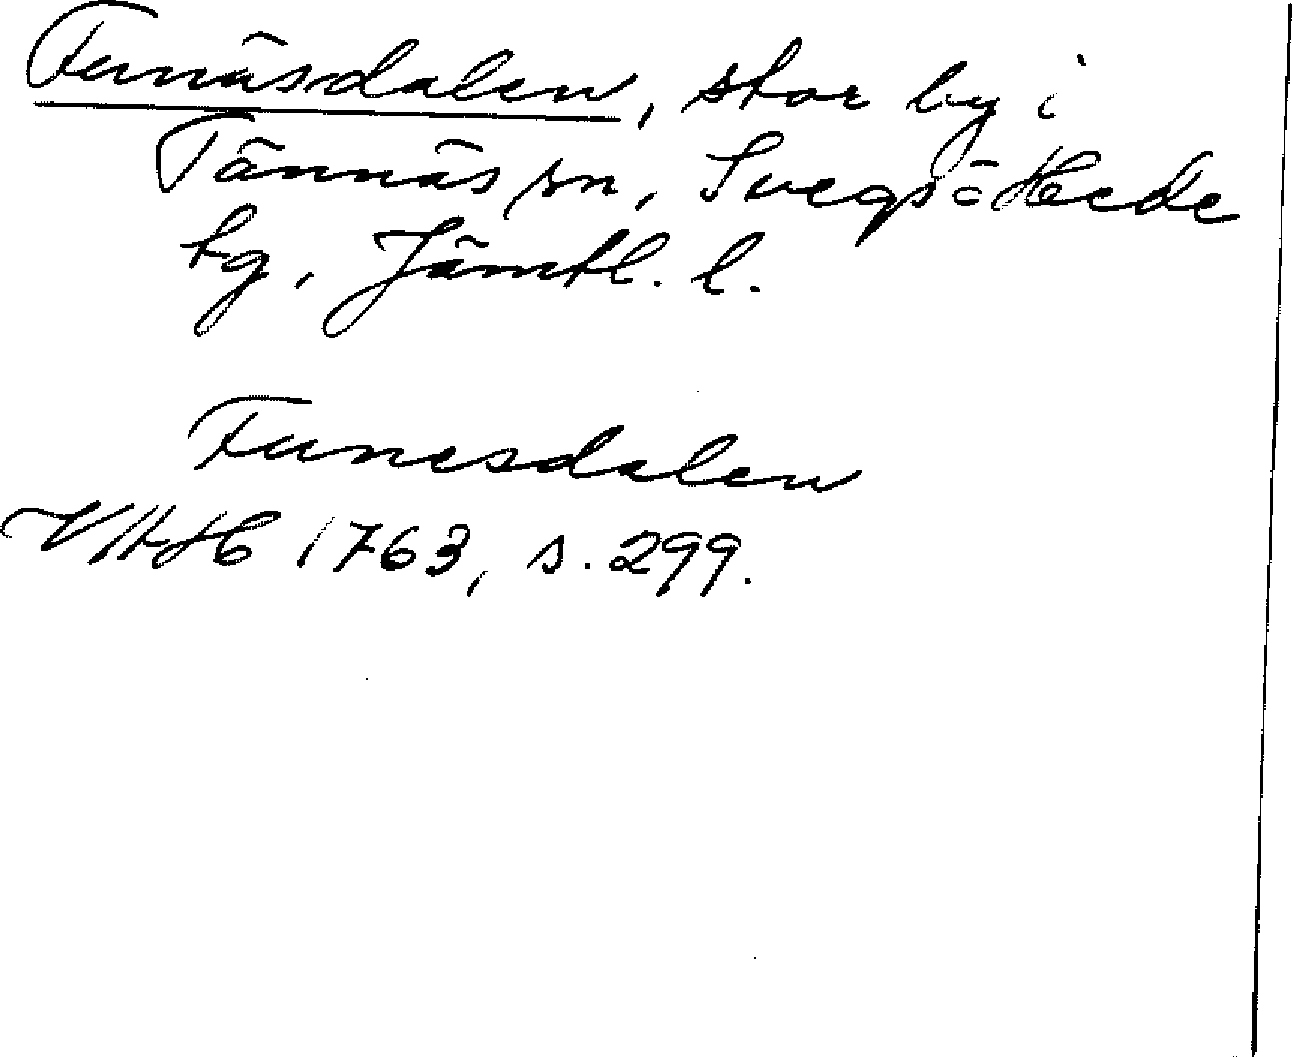 Funäsdalen, stor by i
Tännäs sn, Svegs o Hede
tg, Jämtl. l.
Funesdalen
VHAH 1763, s. 299.